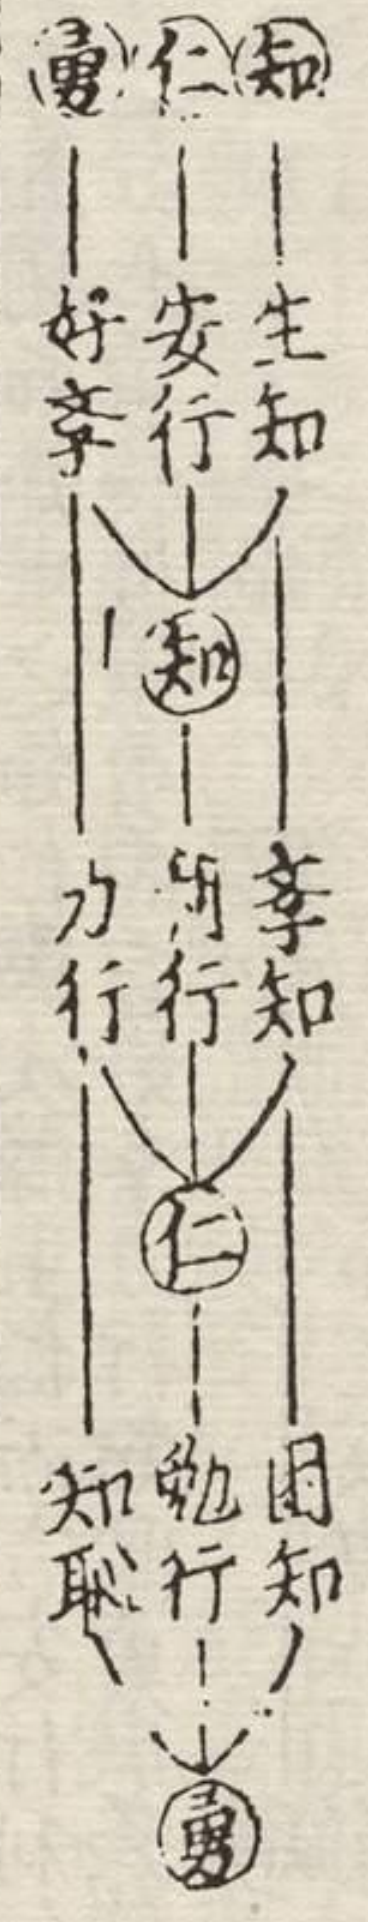 知
仁
勇
生知
安行
好斈
知
斈知
利行
力行
仁
困知
勉行
知恥
勇